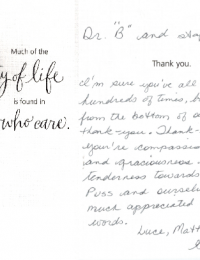 Much of the
y of life
is found in
who care.
Dr. "B" and sta
Thank you.
I'm sure you've all
hundreds of times, b
from the bottom of o
thank-you. Thank-
you're compassio
and graciousness
tenderness towards
Puss and ourselve
much appreciated
words.
Luce, Matt